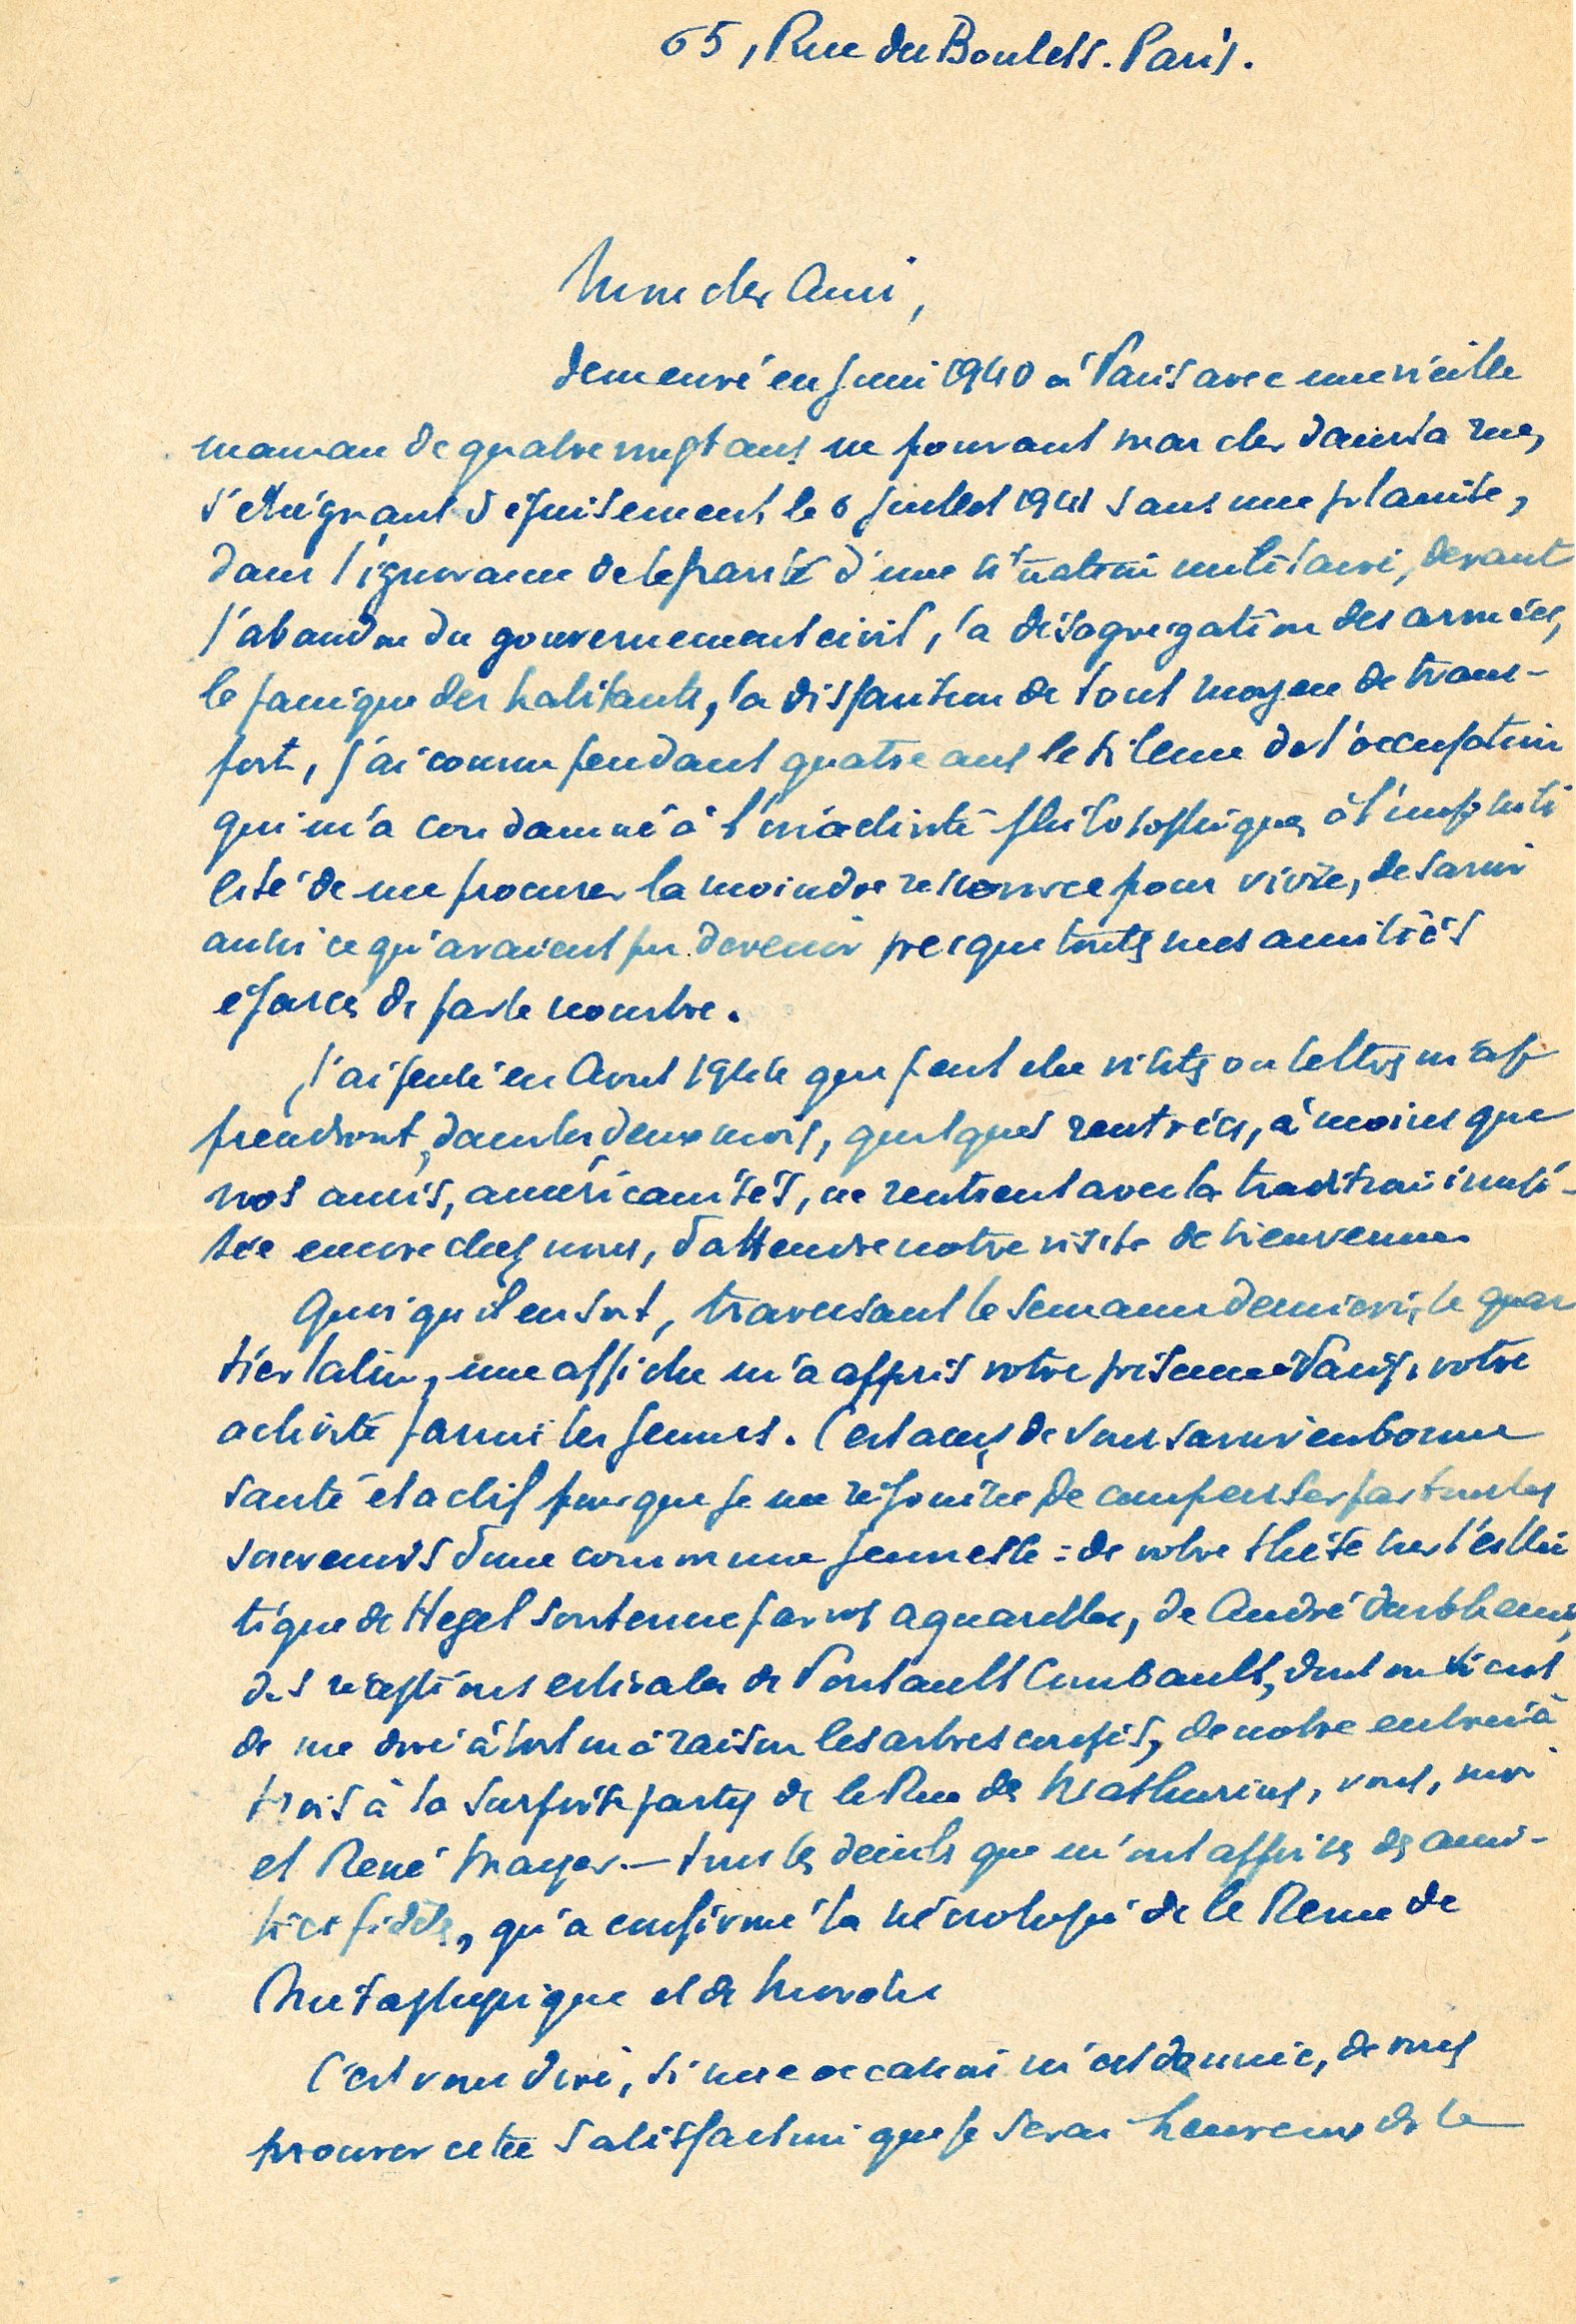 65, Rue des Boulets. Paris.
Mon cher Ami,
demeuré en Juin 1940 à Paris avec une vieille
maman de quatre vingt ans ne pouvant marcher dans la rue,
s'éteignant d'épuisement le 6 juillet 1941 sans une plainte,
dans l'ignorance de la gravité d'une situation militaire, devant
l'abandon du gouvernement civil, la désagrégation des armées,
la panique des habitants, la disparition de tout moyen de trans-
port, j'ai connu pendant quatre ans le silence de l'occupation
qui m'a condamné à l'inactivité philosophique, à l'impossibi
lité de me procurer la moindre ressource pour vivre, de savoir
aussi ce qu'avaient pu devenir presque toutes mes amitiés
éparses de par le monde.
J'ai pensé en Aout 1944 que peut être visites ou lettres m'ap
prendront, dans les deux mois, quelques rentrées, à moins que
nos amis, américanisés, ne rentrent avec la tradition inusi-
tée encore chez nous, d'attendre notre visite de bienvenue
Quoiqu'il en soit, traversant la semaine dernière, le quar
tier latin, une affiche m'a appris votre présence à Paris, votre
activité parmi les jeunes. C'est assez de vous savoir en bonne
santé et actif pour que je me réjouisse de compenser par tous les
souvenirs d'une commune jeunesse : de votre thèse sur l'esthé
tique de Hegel soutenue par vos aquarelles, de André
des réceptions estivales de Pontault Combault, dont on vient
de me dire à tort ou à raison les arbres coupés, de notre entrevue à
trois à la surprise party de la Rue des Mathurins, vous, moi
et René Mayer. — tous les deuils que m'ont appris des ami-
tiés fidèles, qu'a confirmé la nécrologie de la Revue de
Métaphysique et de Morale
C'est vous dire, si une occasion m'est donnée, de vous
prouver cette satisfaction que je serai heureux de la